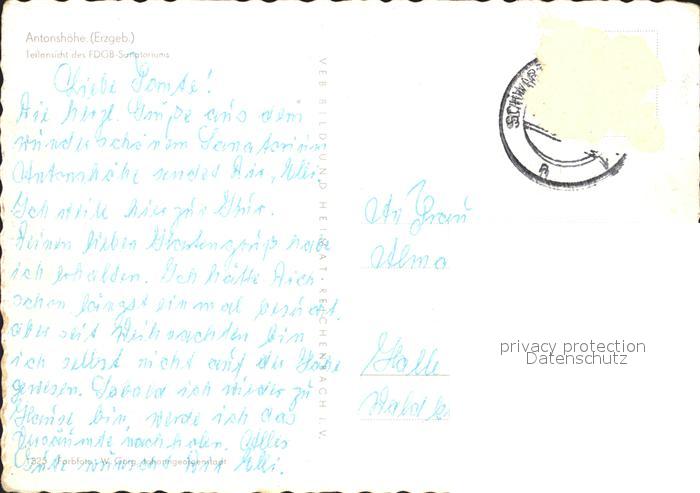 Antonshöhe (Erzgeb.)
Teilansicht des FDGB-Sanatoriums
Liebe Tante!
Die herzl. Grüße aus dem
wunderschönen Sanatorium
Antonshöhe sendet Dir, Elli.
Ich weile hier zur Kur.
Deinen lieben Kartengruß habe
ich erhalten. Ich hätte Dich
schon längst einmal besucht.
aber seit Weihnachten bin
ich selbst nicht auf der Höhe
gewesen. Sobald ich wieder zu
Hause bin, werde ich das
Versäumte nachholen. Alles
Gute wünscht Dir Elli.
1325 Farbfoto: W. Görg, Johanngeorgenstadt
VEB BILD UND HEIMAT · REICHENBACH I. V.
SCHWAR
An Frau
Alma
Halle
privacy protection
Datenschutz